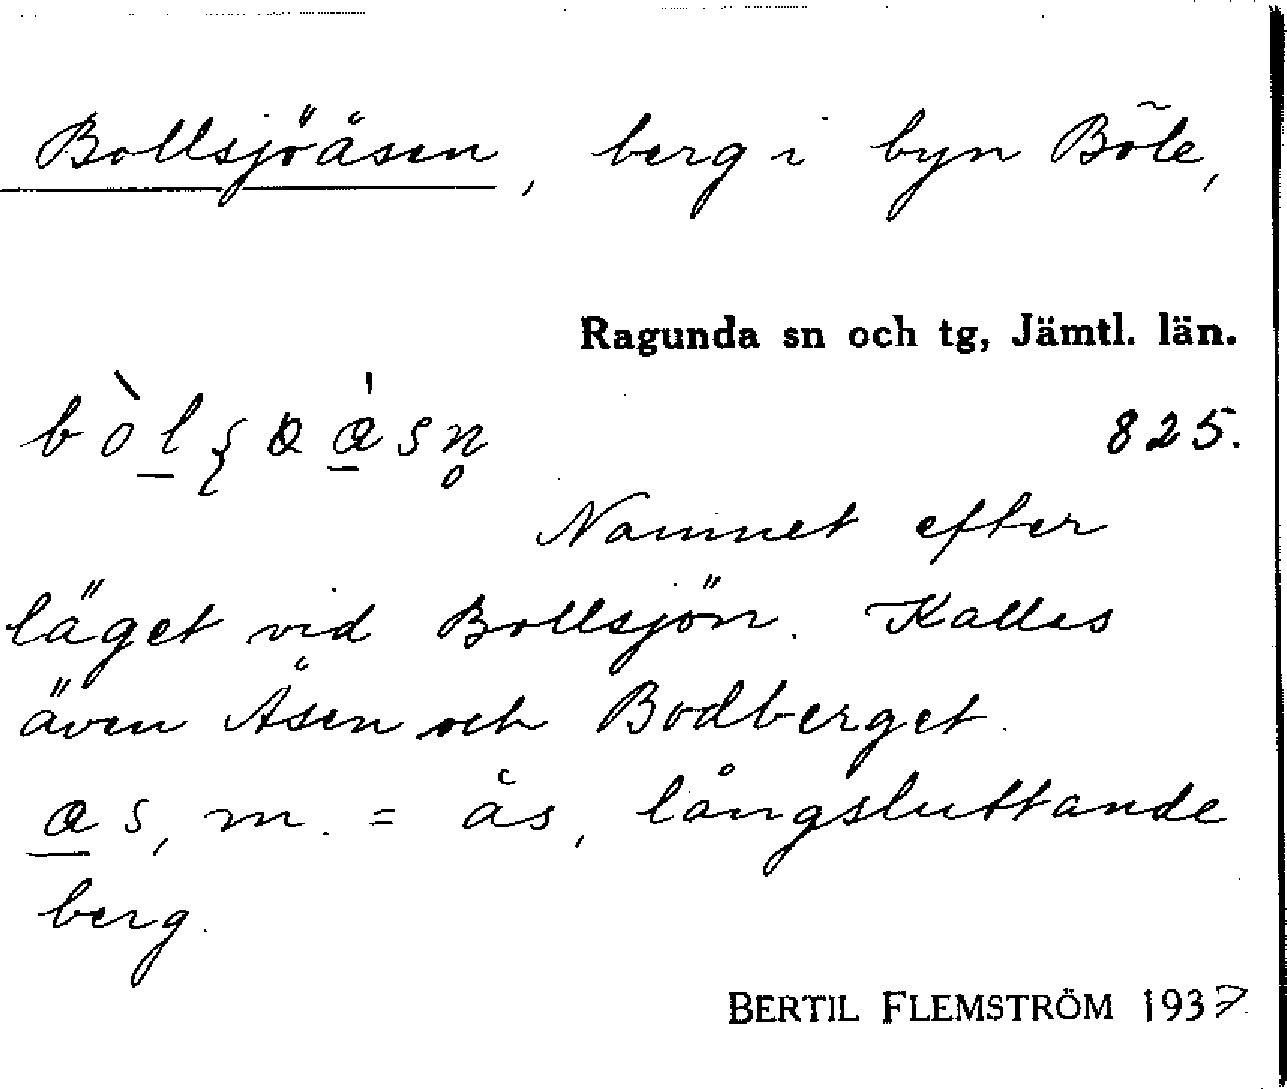 Bollsjöåsen, berg i byn Böle,
Ragunda sn och tg, Jämtl. län.
825.
Namnet efter
läget vid Bollsjön. Kallas
även Åsen och Bodberget.
as, m. = ås, långsluttande
berg.
BERTIL FLEMSTRÖM 1937